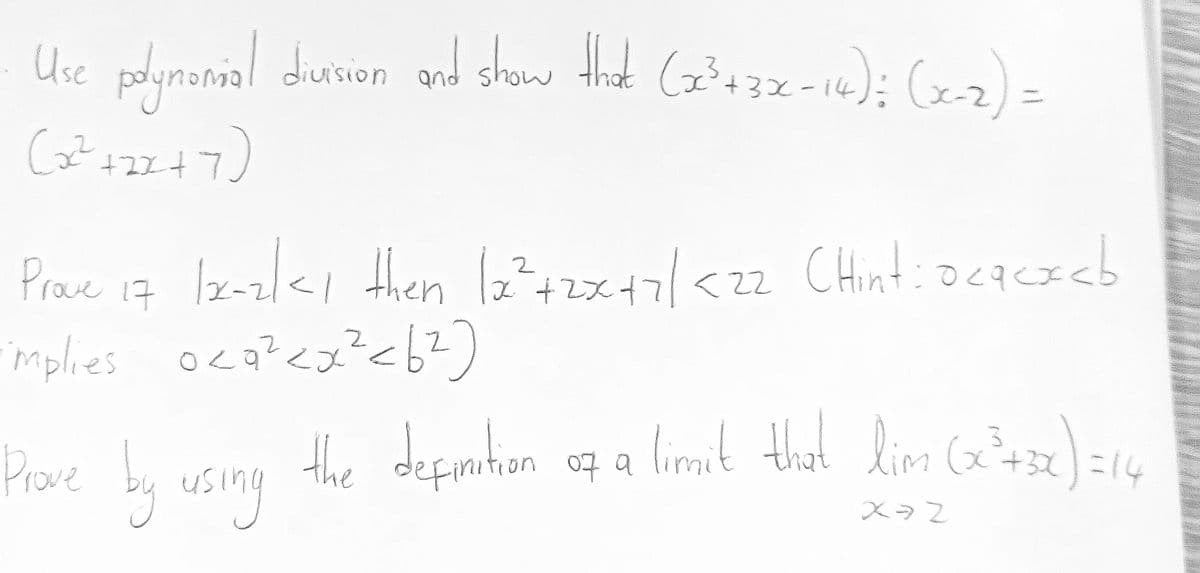 Use polynomial division and show that (x³+3x-14):(x-2) =
(x²+2x+7)
Prove if |x-2|<1 then |x²+2x+7|<22 (Hint: 0<a<x<b
implies 0<a²<x²<b²)
Prove by using the definition of a limit that lim (x³+3x)=14
x→2